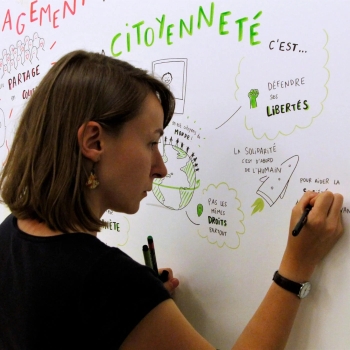 CITOYENNETÉ
GEMENT
C'EST...
PARTAGE
DÉFENDRE
SES
LIBERTÉS
MONDE!
LA SOLIDARITÉ
C'EST D'ABORD
DE L'HUMAIN
POUR AIDER LA
PAS LES
MÊMES
DROITS
PARTOUT